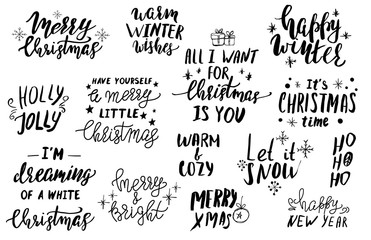 Merry
Christmas
warm
WINTER
wishes
ALL I WANT
FOR
Christmas
IS YOU
happy
winter
HOLLY
JOLLY
HAVE YOURSELF
a merry
LITTLE
Christmas
It's
CHRISTMAS
time
I'M
dreaming
OF A WHITE
Christmas
merry &
bright
WARM
&
COZY
MERRY
XMAS
Let it
SNOW
HO
HO
HO
happy
NEW YEAR